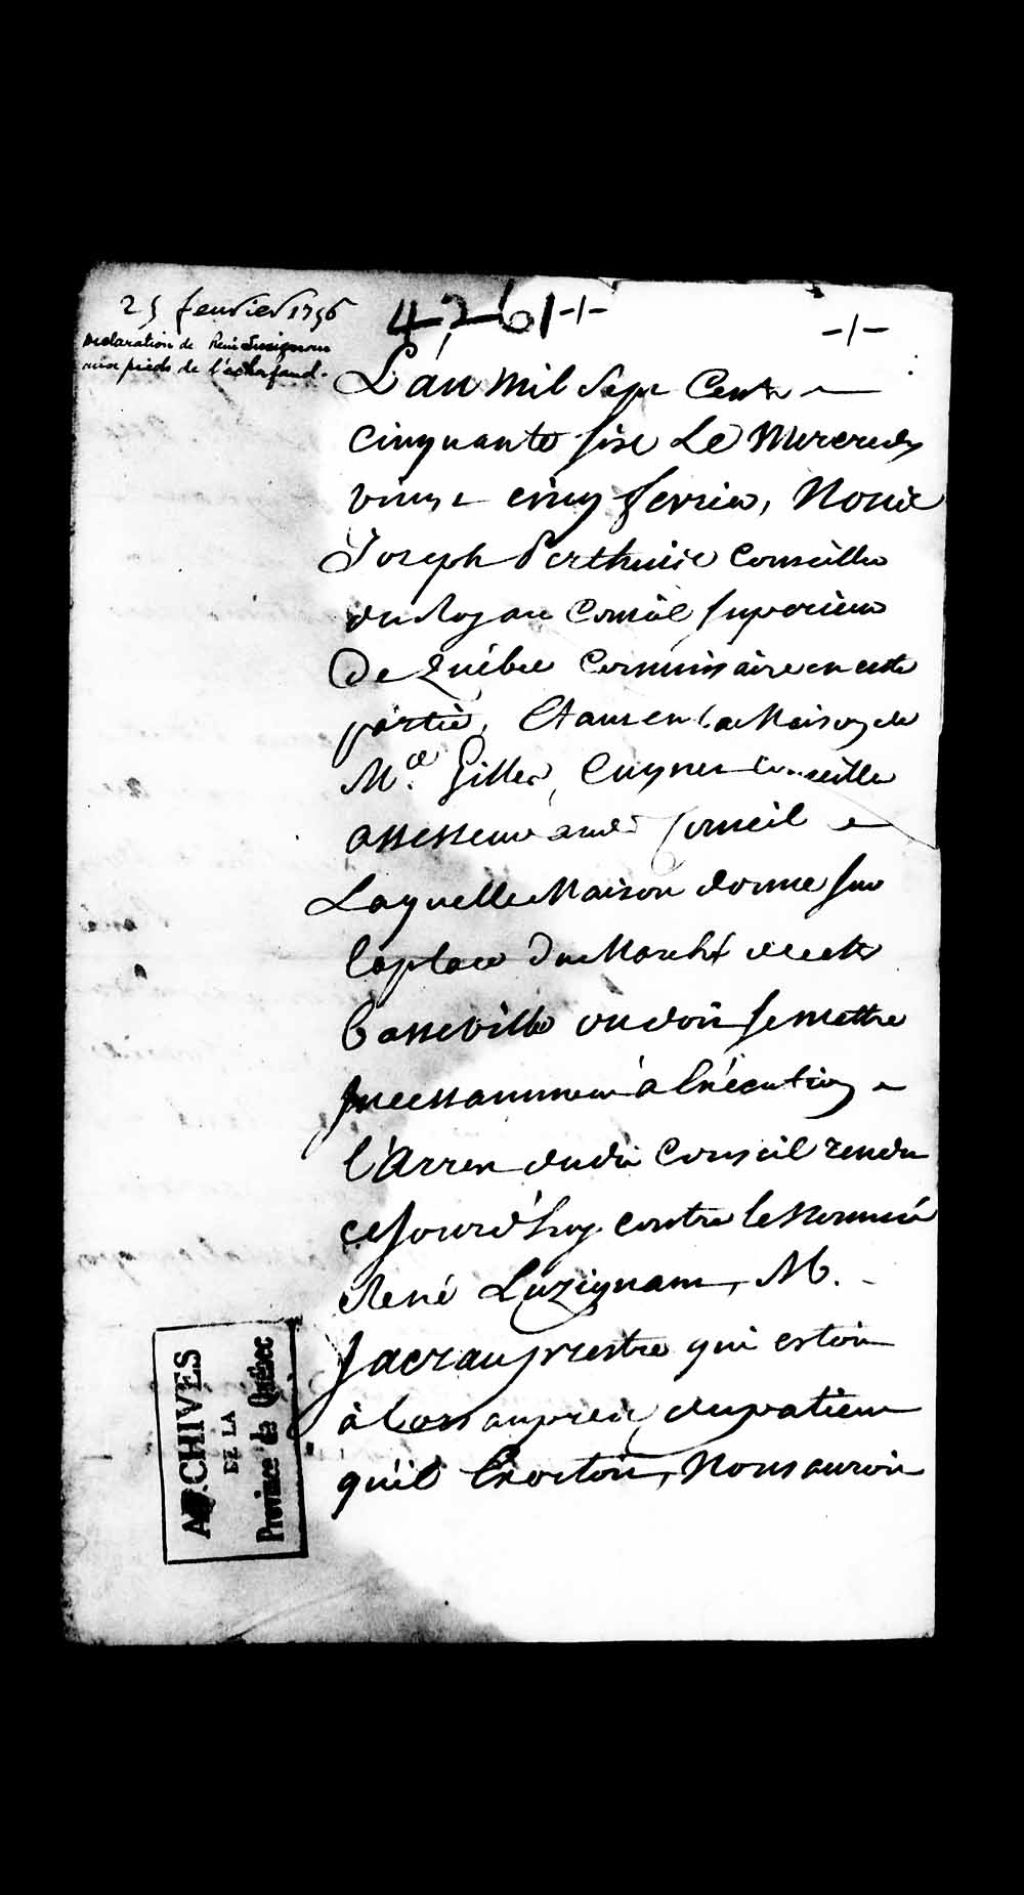 25 fevrier 1756
4261
Declaration de René Lusignan
aux pieds de l'echafaud.
L'an mil Sept Cent
cinquante sixe Le Mercredy
vingt cinq fevrier, Nous
Joseph Perthuis Conseiller
du Roy au Conseil superieur
De Québec Commissaire en cette
partie, Etant en la Maison de
Me. Gilles, Cuynet Conseiller
assesseur aud. Conseil
Laquelle Maison donne sur
la place Du Marché de cette
basseville ou doit se mettre
Jncessamment à l'Exécution
l'Arrest dudit Conseil rendu
ce Jourd'huy contre le Nommé
René Luzignam, M.
Jacrau prestre qui estoit
à Coss aupres du patient
qu'il Exortoit, Nous auroit
ARCHIVES
DE LA
Province de Québec